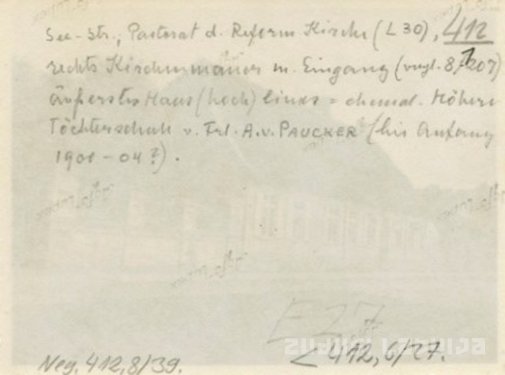 See-Str., Pastorat d. Reform Kirche (L 30), 412
rechts Kirchenmauer m. Eingang (vergl. 8/207)
äußerstes Haus (hoch) links = ehemal. Höhere
Töchterschule v. Frl. A. v. PAUCKER (bis Anfang
1901-04?).
E 27
Neg. 412, 8/39.
L 412, 6/27.